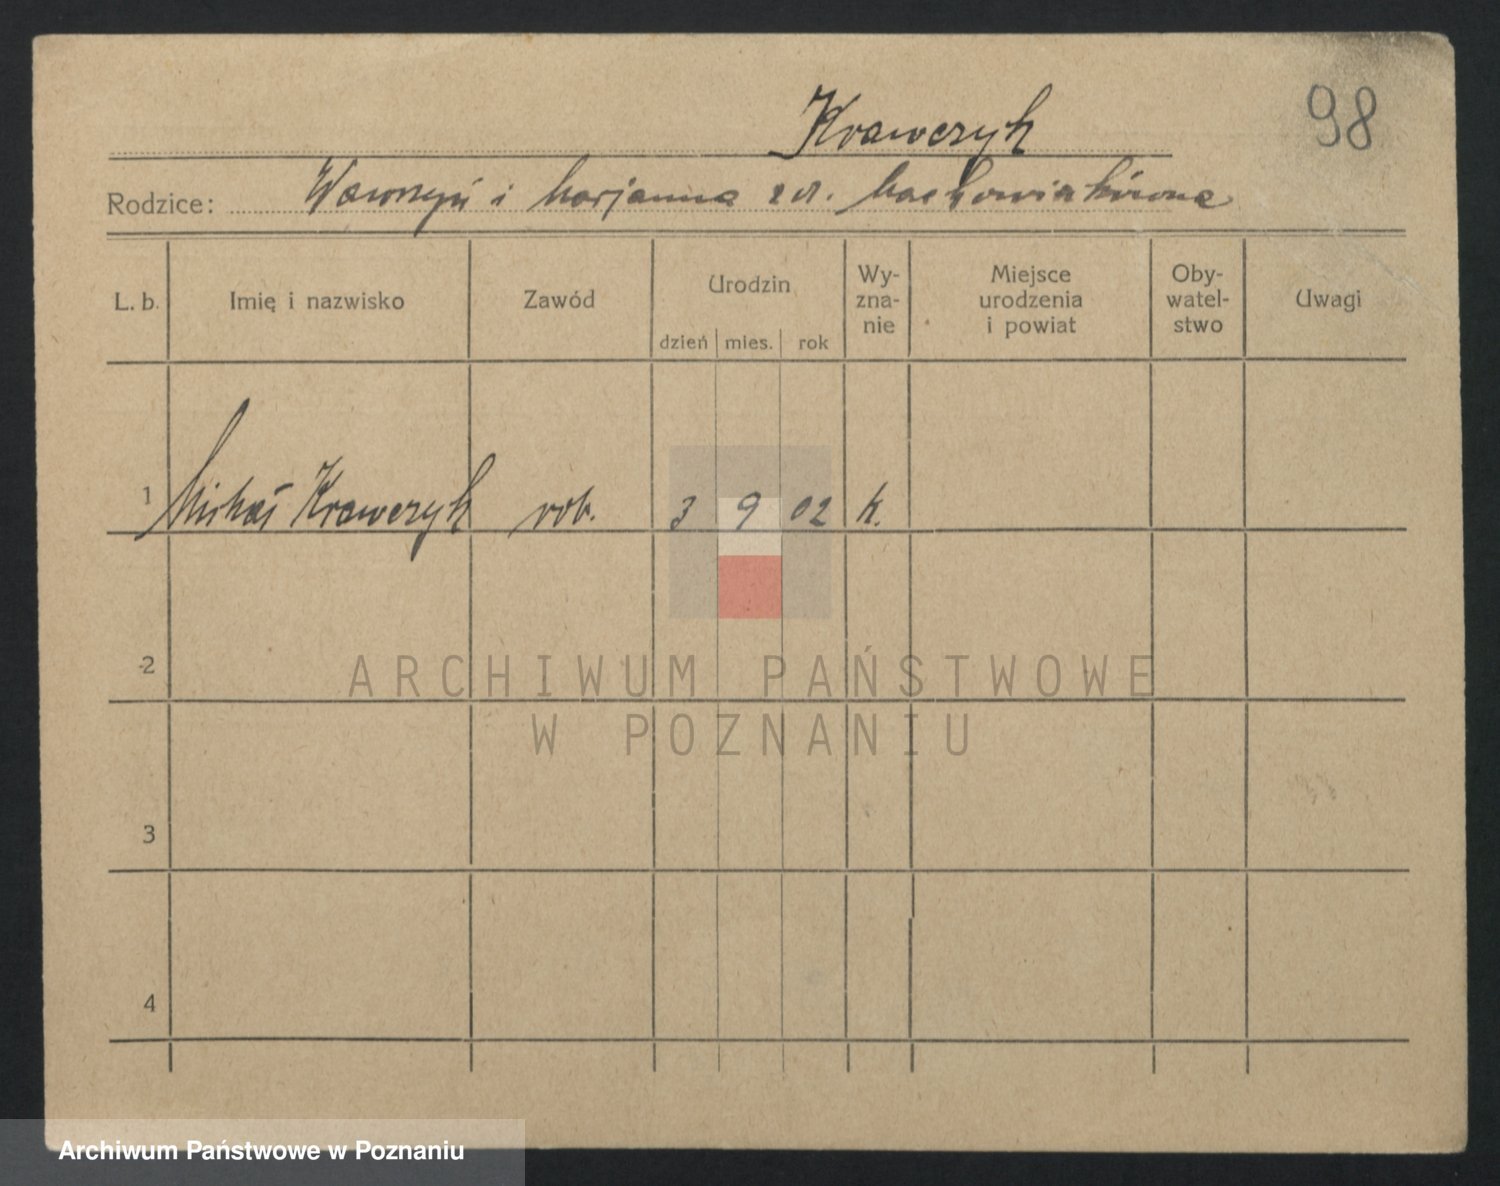 Krawczyk
98
Rodzice: Wawrzyn i Marjanna z d.
L. b.
Imię i nazwisko
Zawód
Urodzin
dzień
mies.
rok
Wy-
zna-
nie
Miejsce
urodzenia
i powiat
Oby-
watel-
stwo
Uwagi
1 Krawczyk rob. 3 9 02 k.
2
3
4
ARCHIWUM PAŃSTWOWE
W POZNANIU
Archiwum Państwowe w Poznaniu